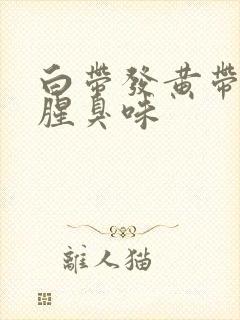 白帶發黃帶
腥臭味
離人猫